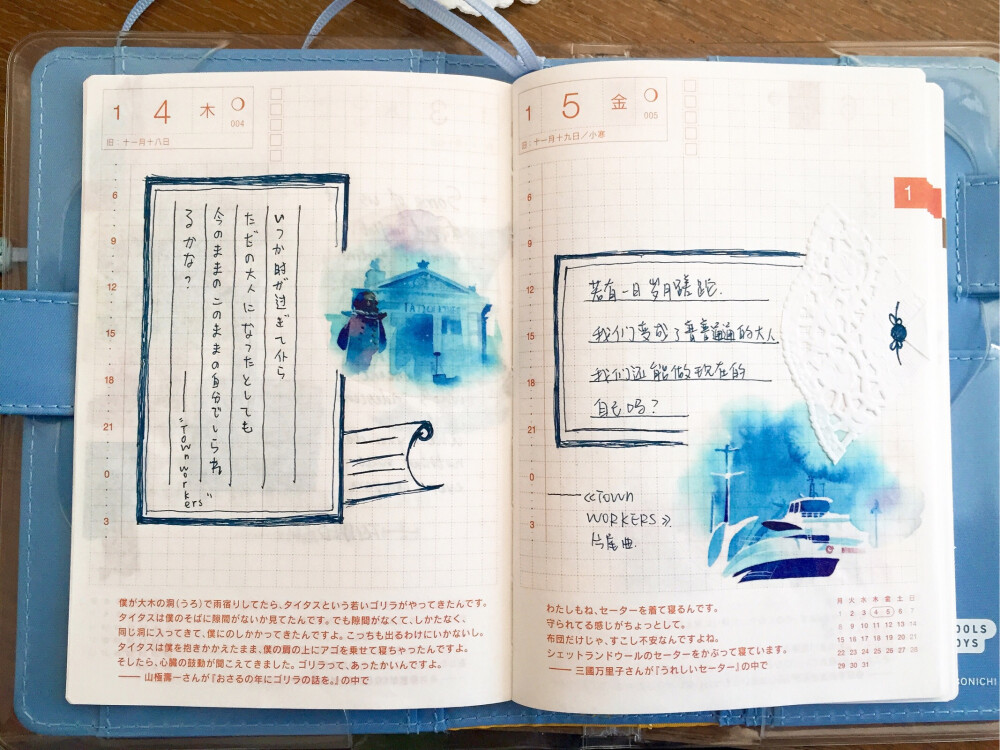 1 4 木 004
旧:十一月十八日
6
9
12
15
18
21
0
3
いつか時が過ぎて仆ら
ただの大人になったとしても
今のままのこのままの自分でいられ
るかな?
——"Townworkers"
僕が大木の洞(うろ)で雨宿りしてたら、タイタスという若いゴリラがやってきたんです。
タイタスは僕のそばに隙間がないか見てたんです。でも隙間がなくて、しかたなく、
同じ洞に入ってきて、僕にのしかかってきたんですよ。こっちも出るわけにいかないし。
タイタスは僕を抱きかかえたまま、僕の肩の上にアゴを乗せて寝ちゃったんですよ。
そしたら、心臓の鼓動が聞こえてきました。ゴリラって、あったかいんですよ。
——山極壽一さんが『おさるの年にゴリラの話を。』の中で
1 5 金 005
旧:十一月十九日/小寒
1
6
9
12
15
18
21
0
3
若有一日岁月蹉跎.
我们变成了普普通通的大人
我们还能做现在的
自己吗?
——《TOWN
WORKERS》
片尾曲.
わたしもね、セーターを着て寝るんです。
守られてる感じがちょっとして。
布団だけじゃ、すこし不安なんですよね。
シェットランドウールのセーターをかぶって寝ています。
——三國万里子さんが『うれしいセーター』の中で
月 火 水 木 金 土 日
1 2 3 4 5 6 7
8 9 10 11 12 13 14
15 16 17 18 19 20 21
22 23 24 25 26 27 28
29 30 31
OOLS
OYS
BONICHI